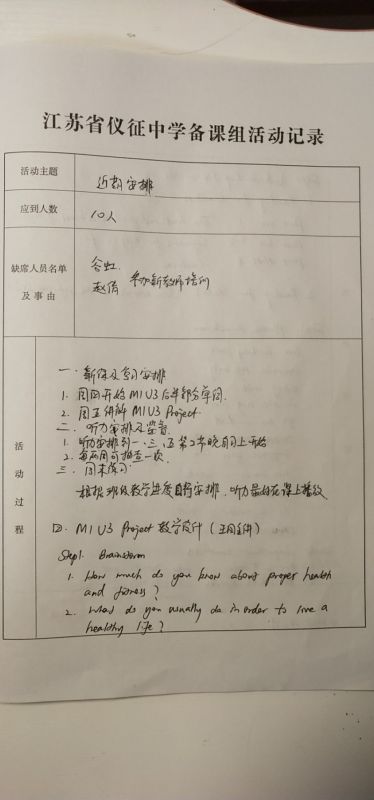 江苏省仪征中学备课组活动记录
活动主题
近期安排
应到人数
10人
缺席人员名单
及事由
谷虹
赵倩 参加新教师培训
活动过程
一. 新课及复习安排
1. 周四开始 M1U3 后半部分字词.
2. 周五讲解 M1U3 Project.
二. 听力安排及
1. 听力安排到一、三、五第2节晚自习上开始
2. 每两周可抽查一次.
三. 周末练习
根据班级教学进度自行安排, 听力最好在课上播放
四. M1U3 Project 教学设计 (
Step1. Brainstorm
1. How much do you know about proper health
and fitness?
2. What do you usually do in order to live a
healthy life?